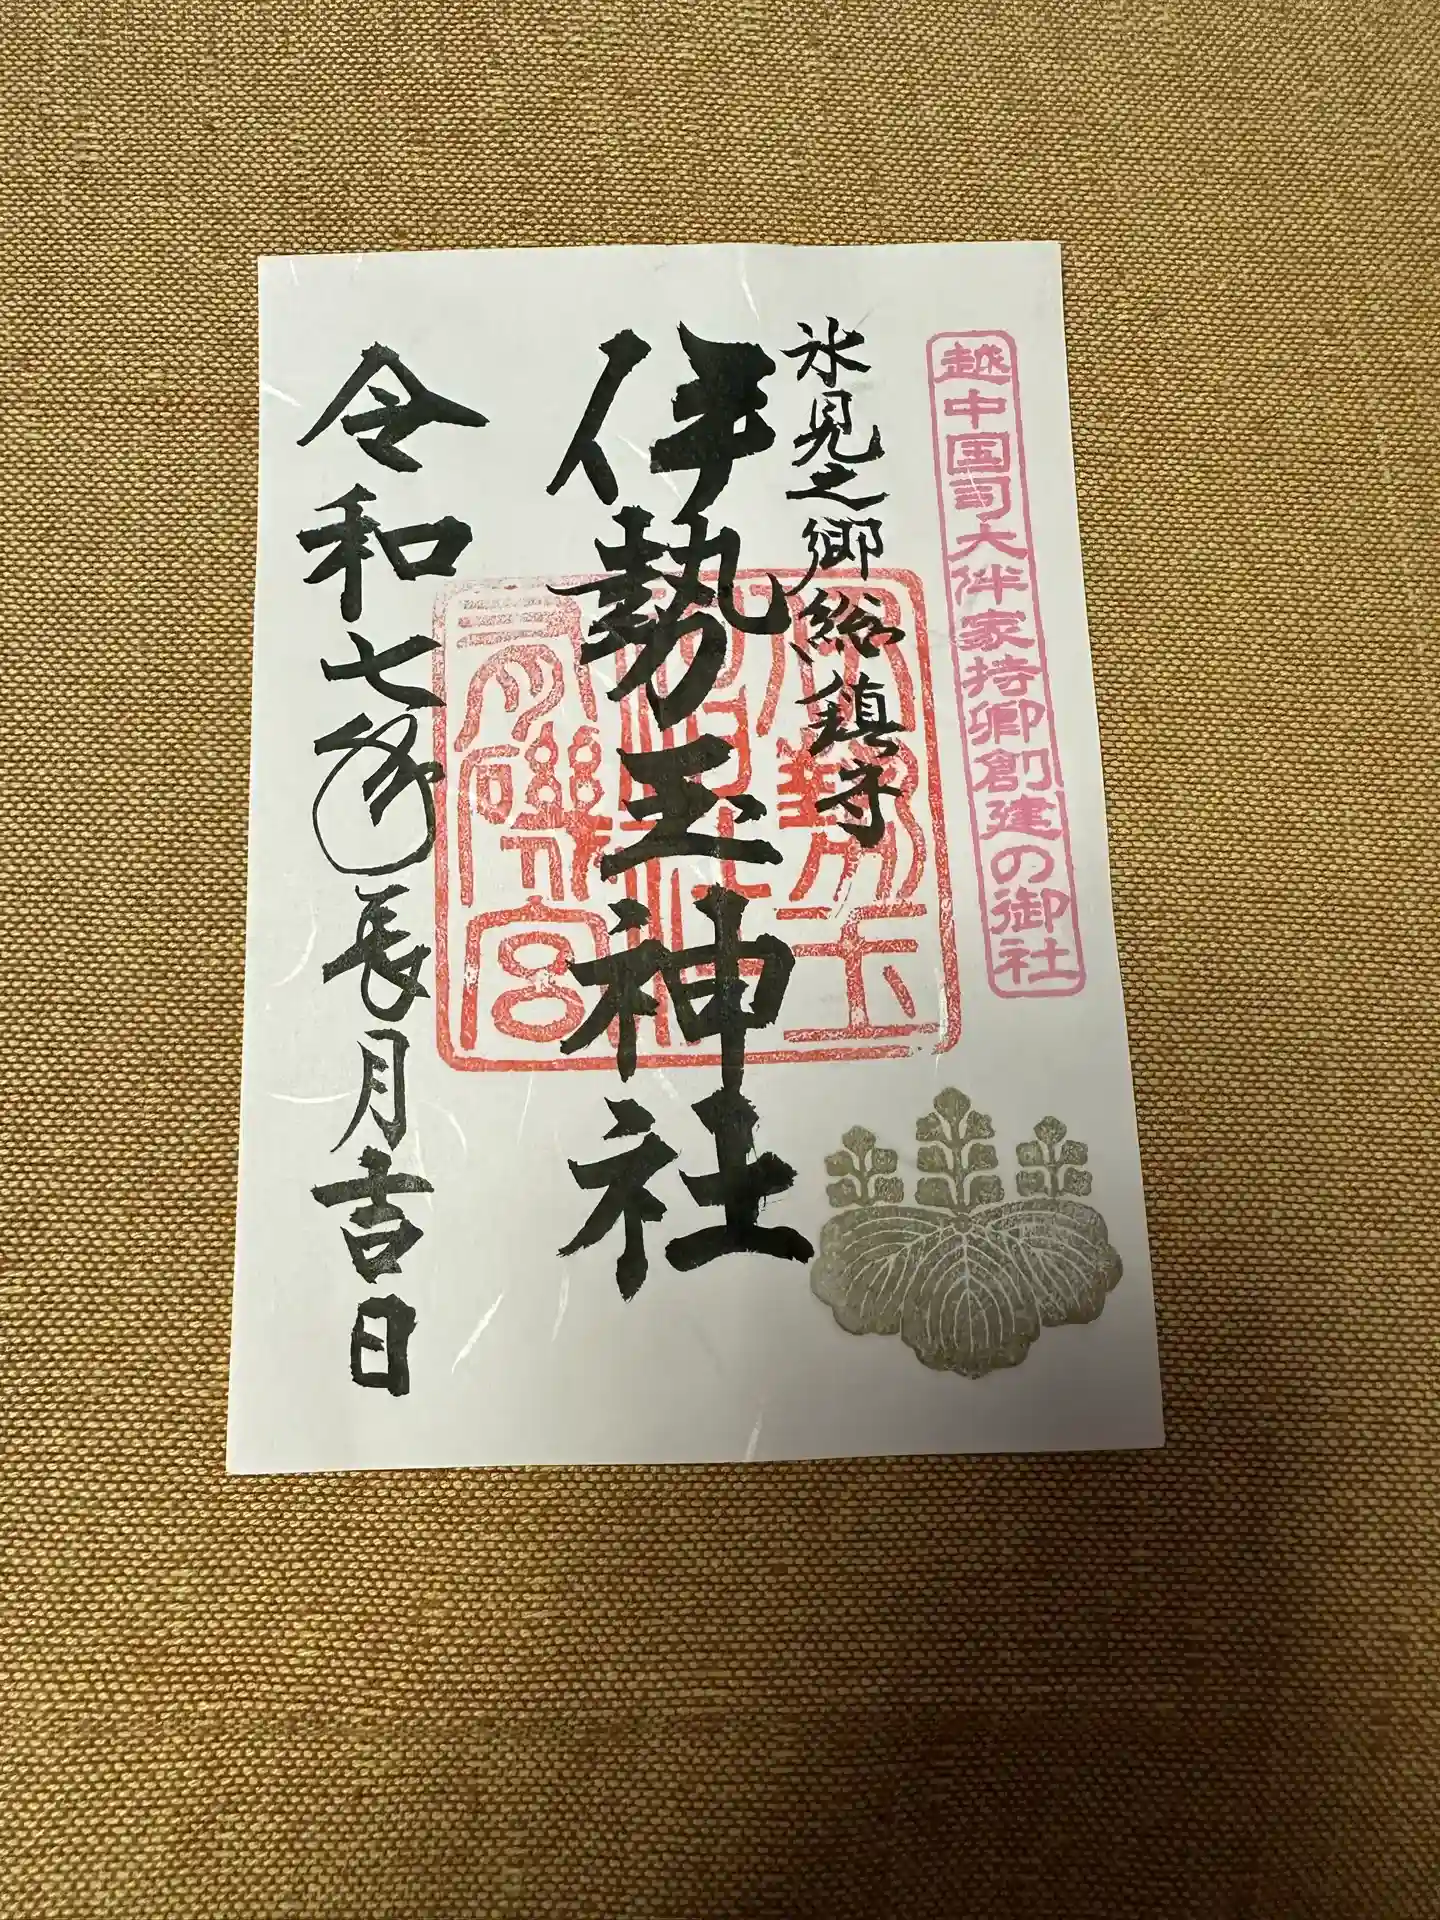 越中国司大伴家持卿創建の御社
氷見之郷総鎮守
伊勢玉神社
伊勢玉
有磯宮
令和七 長月吉日